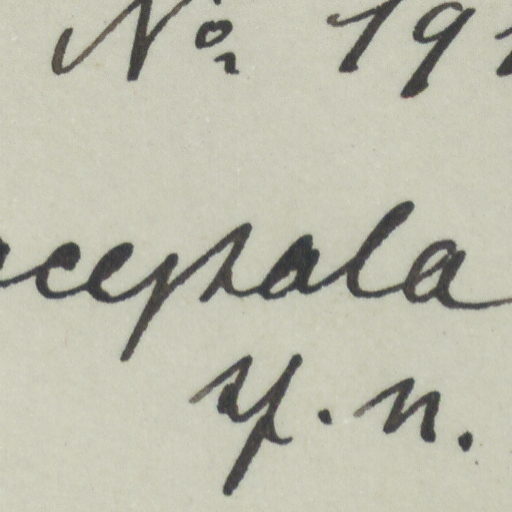 No 191
cephala
sp. n.